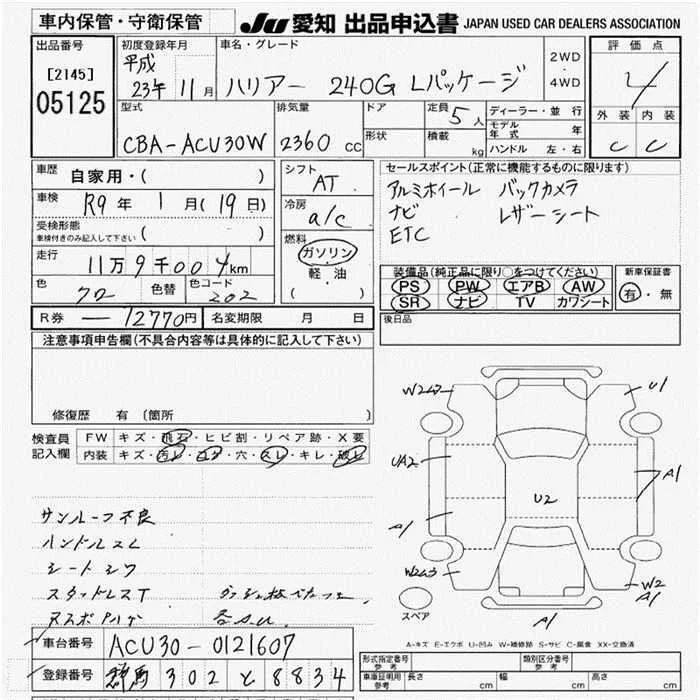 車内保管・守衛保管 JU 愛知 出品申込書 JAPAN USED CAR DEALERS ASSOCIATION
出品番号 初度登録年月 車名・グレード 評価点
[2145] 平成 2WD
05125 23年 11月 ハリアー 240G Lパッケージ ・ 4WD 4
型式 排気量 ドア 定員 5人 ディーラー・並行 外装 内装
モデル年式 年
CBA-ACU30W 2360 CC 形状 積載 kg ハンドル 左・右 C C
車歴 自家用・( ) シフト AT セールスポイント(正常に機能するものに限ります)
車検 R9年 1月(19日) 冷房 a/c アルミホイール バックカメラ
受検形態 ( ) ナビ レザーシート
車検付きのみ記入して下さい 燃料 ETC
走行 11万9千004km ガソリン
軽・油 装備品(純正品に限り○をつけてください) 新車保証書
色 クロ 色替 色コード 202 ( ) PS PW エアB AW 有・無
SR ナビ TV カワシート
R券 ー 12770円 名変期限 月 日 後日品
注意事項申告欄(不具合内容等は具体的に記入して下さい)
修復歴 有 (箇所
検査員 FW キズ・飛石・ヒビ割・リペア跡・X要
記入欄 内装 キズ・汚レ・コゲ・穴・スレ・キレ・破レ
W2 U1
UA2 A1
U2
A1
W2 W2 A1
A1
スペア
サンルーフ不良
ハンドルスレ
シートシワ
スタッドレスT
A-キズ E-エクボ U-凹み W-補修跡 S-サビ C-腐食 XX-交換済
車台番号 ACU30-0121607
登録番号 練馬 302 と 8834
形式指定番号 参考 類別区分番号 参考
車庫証明用 参考 長さ cm 幅 cm 高さ cm